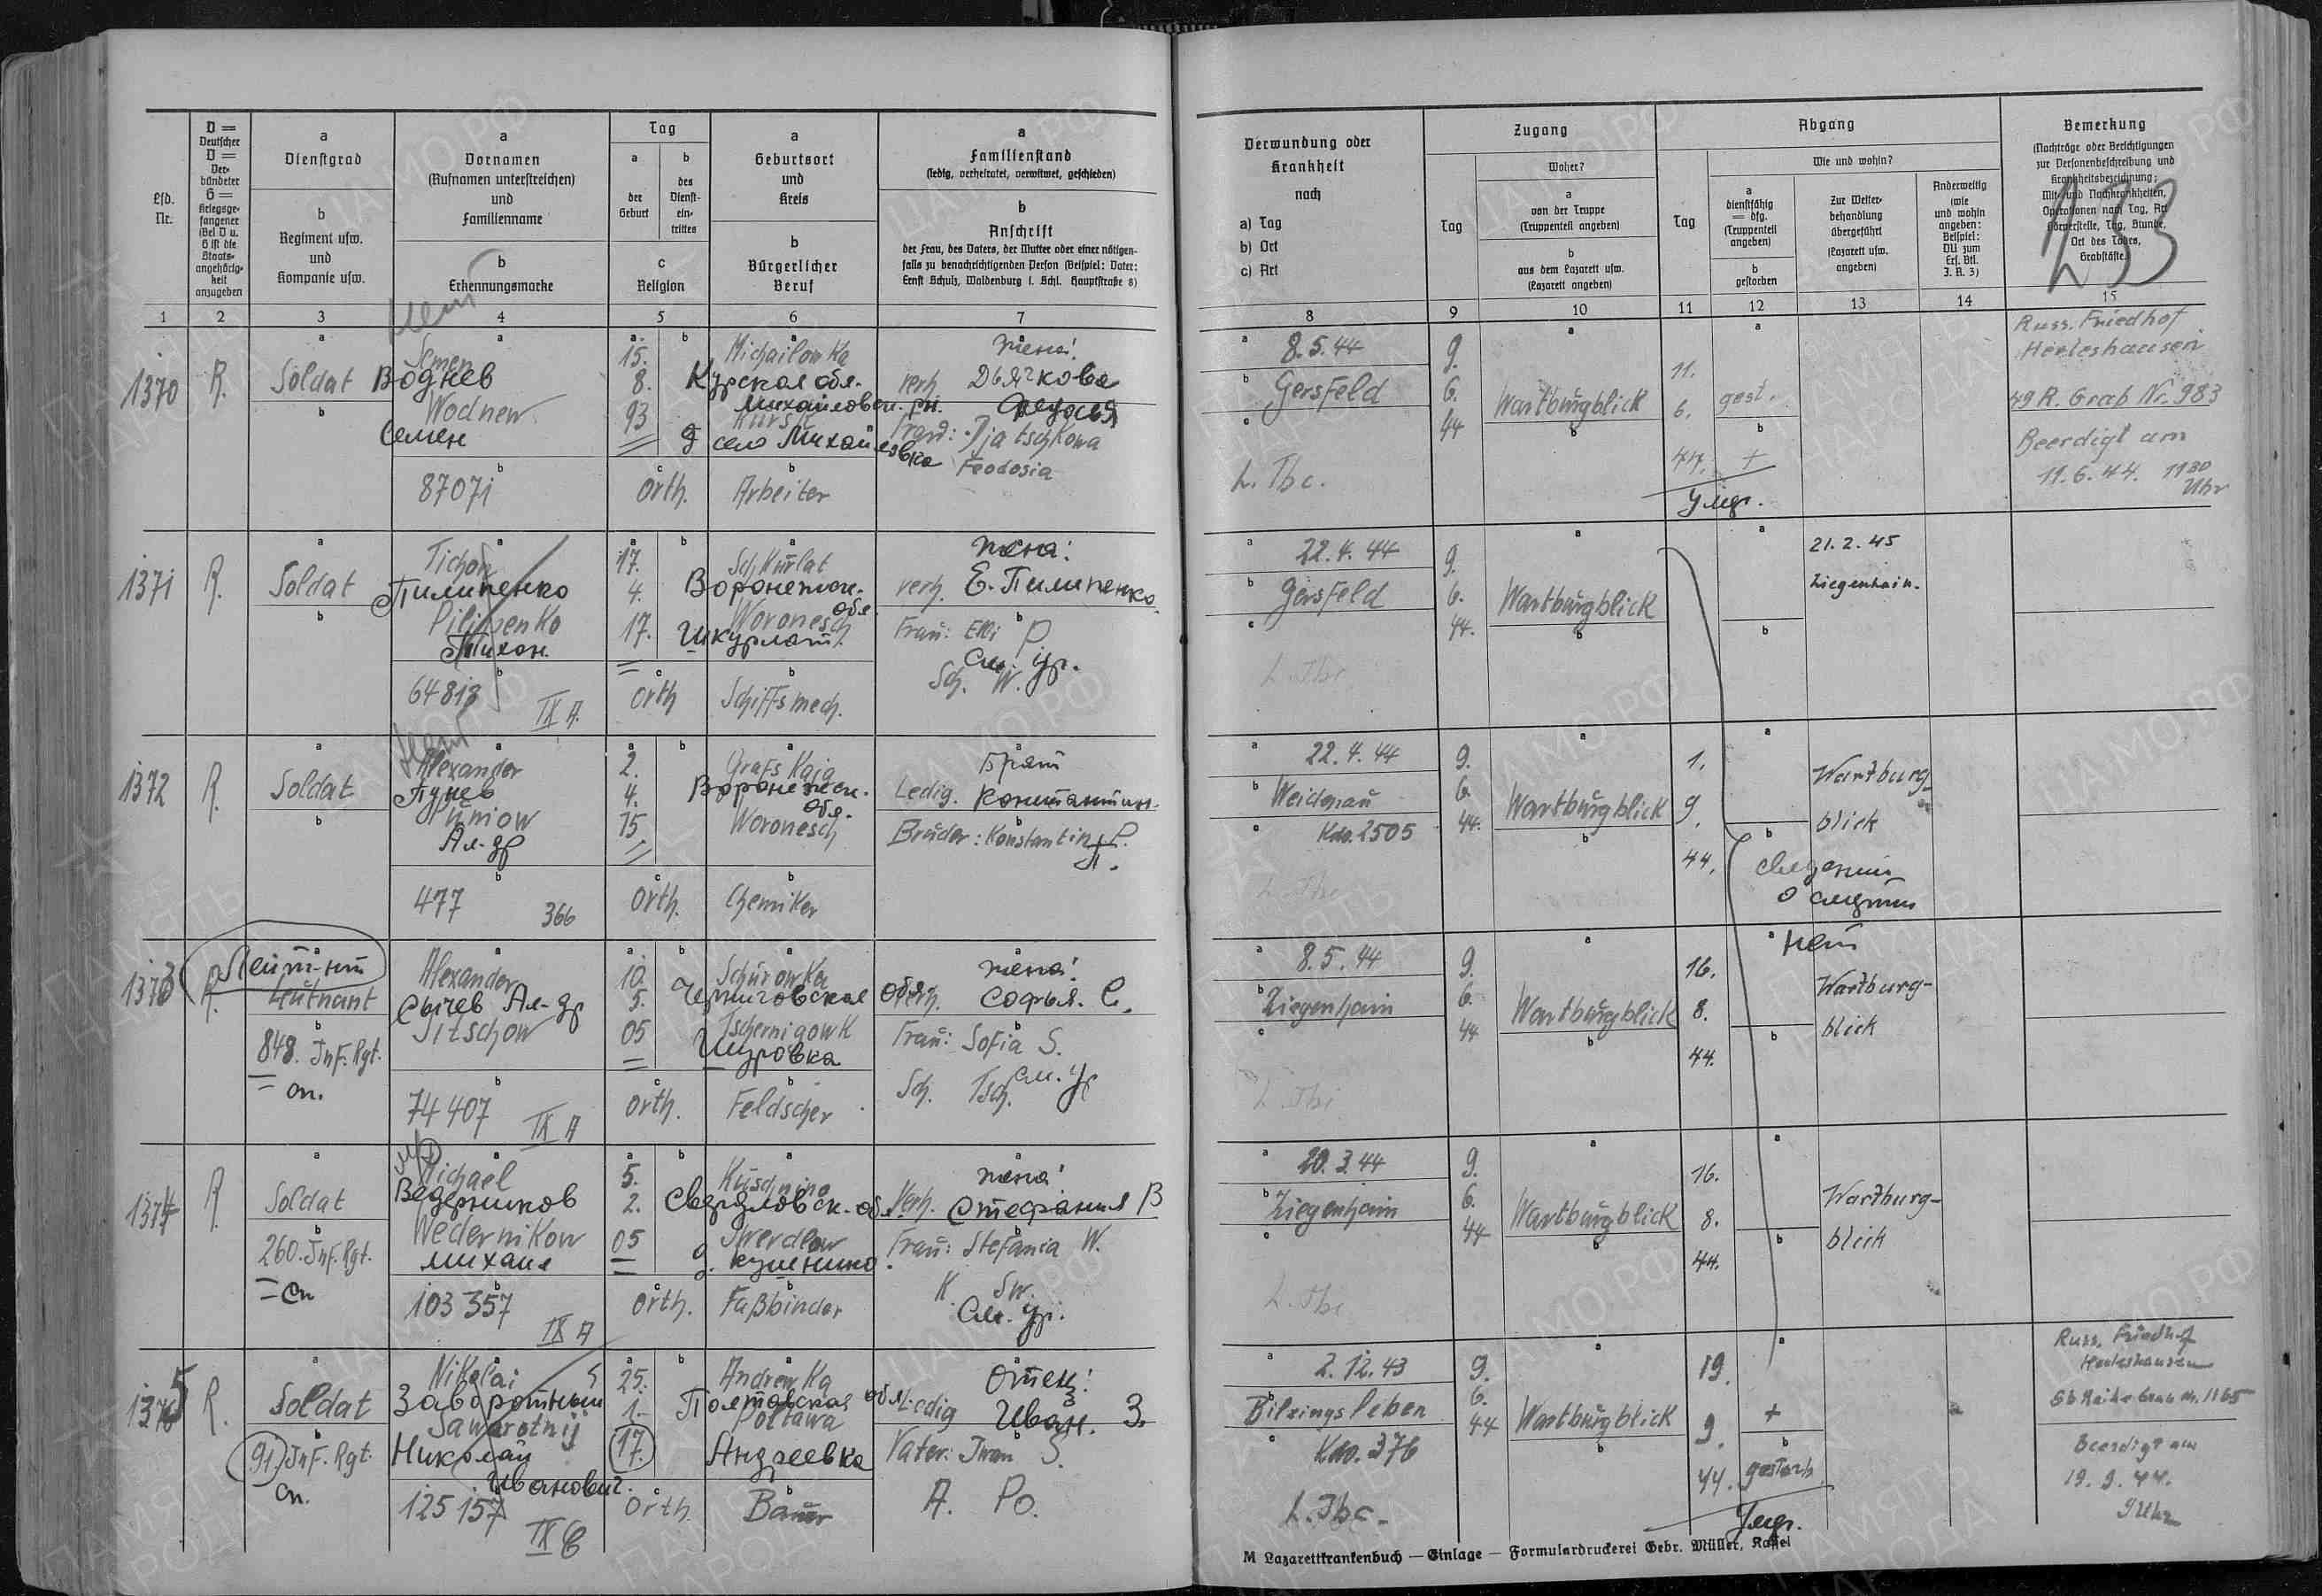 Lfd. Nr.
D = Deutscher
D = Verbündeter
G = Kriegsgefangener
(Bei V u. G ist die Staatsangehörigkeit anzugeben
a
Dienstgrad
b
Regiment usw.
und
Kompanie usw.
a
Vornamen
(Rufnamen unterstreichen)
und
Familienname
b
Erkennungsmarke
Tag
a
der Geburt
b
des Diensteintrittes
c
Religion
a
Geburtsort
und
Kreis
b
Bürgerlicher
Beruf
a
Familienstand
(ledig, verheiratet, verwitwet, geschieden)
b
Anschrift
der Frau, des Vaters, der Mutter oder einer nötigen-
falls zu benachrichtigenden Person (Beispiel: Vater:
Ernst Schulz, Waldenburg i. Schl. Hauptstraße 8)
Verwundung oder
Krankheit
nach
a) Tag
b) Ort
c) Art
Zugang
Tag
Woher?
a
von der Truppe
(Truppenteil angeben)
b
aus dem Lazarett usw.
(Lazarett angeben)
Abgang
Tag
Wie und wohin?
a
dienstfähig
= dfg.
(Truppenteil
angeben)
b
gestorben
Zur Weiter-
behandlung
übergeführt
(Lazarett usw.
angeben)
Anderweitig
(wie
und wohin
angeben:
Beispiel:
DU zum
Ers. Btl.
J. R. 3)
Bemerkung
(Nachträge oder Berichtigungen
zur Personenbeschreibung und
Krankheitsbezeichnung;
Mit- und Nachkrankheiten,
Operationen nach Tag, Art
Körperstelle, Tag, Stunde,
Ort des Todes,
Grabstätte.
133
1 2 3 4 5 6 7 8 9 10 11 12 13 14 15
1370 R. Soldat
Semen
Воднев
Wodnew
Семен
87071
15.
8.
93
orth.
Michailowka
Курская обл.
Михайловск. рн.
Kursk
село Михайловка
Arbeiter
жена:
verh. Дьячкова
Федосья
Frau: Djatschkowa
Feodosia
8.5.44
Gersfeld
L. Tbc.
9.
6.
44
Wartburgblick
11.
6.
44.
gest.
+
умер.
Russ. Friedhof
Herleshausen
49 R. Grab Nr. 983
Beerdigt am
11.6.44. 11 30
Uhr
1371 R. Soldat
Tichon
Пилипенко
Pilipenko
Тихон
64813
IX A.
17.
4.
17.
orth
Schkurlat
Воронежск.
обл.
Woronesch
Шкурлат
Schiffsmech.
жена:
verh. Е. Пилипенко
Frau: Elli P
См. ур.
Sch. W.
22.4.44
Gersfeld
L. Tbc
9.
6.
44.
Wartburgblick
21.2.45
Ziegenhain.
1372 R. Soldat
Alexander
Пунев
Puniow
Ал-др
477 366
2.
4.
15.
orth.
Grafskaja
Воронежск.
обл.
Woronesch
Chemiker
Брат
Ledig. Константин
Bruder: Konstantin P.
П.
22.4.44
Weidenau
Kdo. 2505
L. Tbc
9.
6.
44.
Wartburgblick
1.
9.
44.
Wartburg-
blick
сведений
о смерти
нет
1373 R.
Лейт-нт
Leutnant
848. Inf. Rgt.
сп.
Alexander
Сычев Ал-др
Sitschow
74407
IX A
10.
5.
05
orth.
Schurowka
Черниговская обл.
Tschernigow
Шуровка
Feldscher
жена:
verh. Софья. С.
Frau: Sofia S.
См. ур
Sch. Tsch.
8.5.44
Ziegenhain
L. Tbc
9.
6.
44
Wartburgblick
16.
8.
44.
Wartburg-
blick
1374 R. Soldat
260. Inf. Rgt.
сп
Michael
Ведерников
Wedernikow
Михаил
103357
IX A
5.
2.
05
orth.
Kuschnino
Свердловск. обл.
Swerdlow
д. Кушнино.
Faßbinder
жена:
Verh. Стефания В
Frau: Stefania W.
K. Sw.
См. ур.
20.3.44
Ziegenhain
L. Tbc
9.
6.
44
Wartburgblick
16.
8.
44.
Wartburg-
blick
1375 R. Soldat
91 Inf. Rgt.
сп.
Nikolai
Заворотный
Saworotnij
Николай
Иванович.
125157
IX C
25.
1.
17.
orth.
Andrewka
Полтавская обл.
Poltawa
Андреевка
Bauer
Отец:
Ledig Иван. З.
Vater: Iwan S.
A. Po.
2.12.43
Bilzingsleben
Kdo. 376
L. Tbc.
9.
6.
44
Wartburgblick
19.
9.
44.
+
gestorb.
умер.
Russ. Friedhof
Herleshausen
Beerdigt am
19.9.44.
M Lazarettkrankenbuch — Einlage — Formulardruckerei Gebr. Müller, Kassel